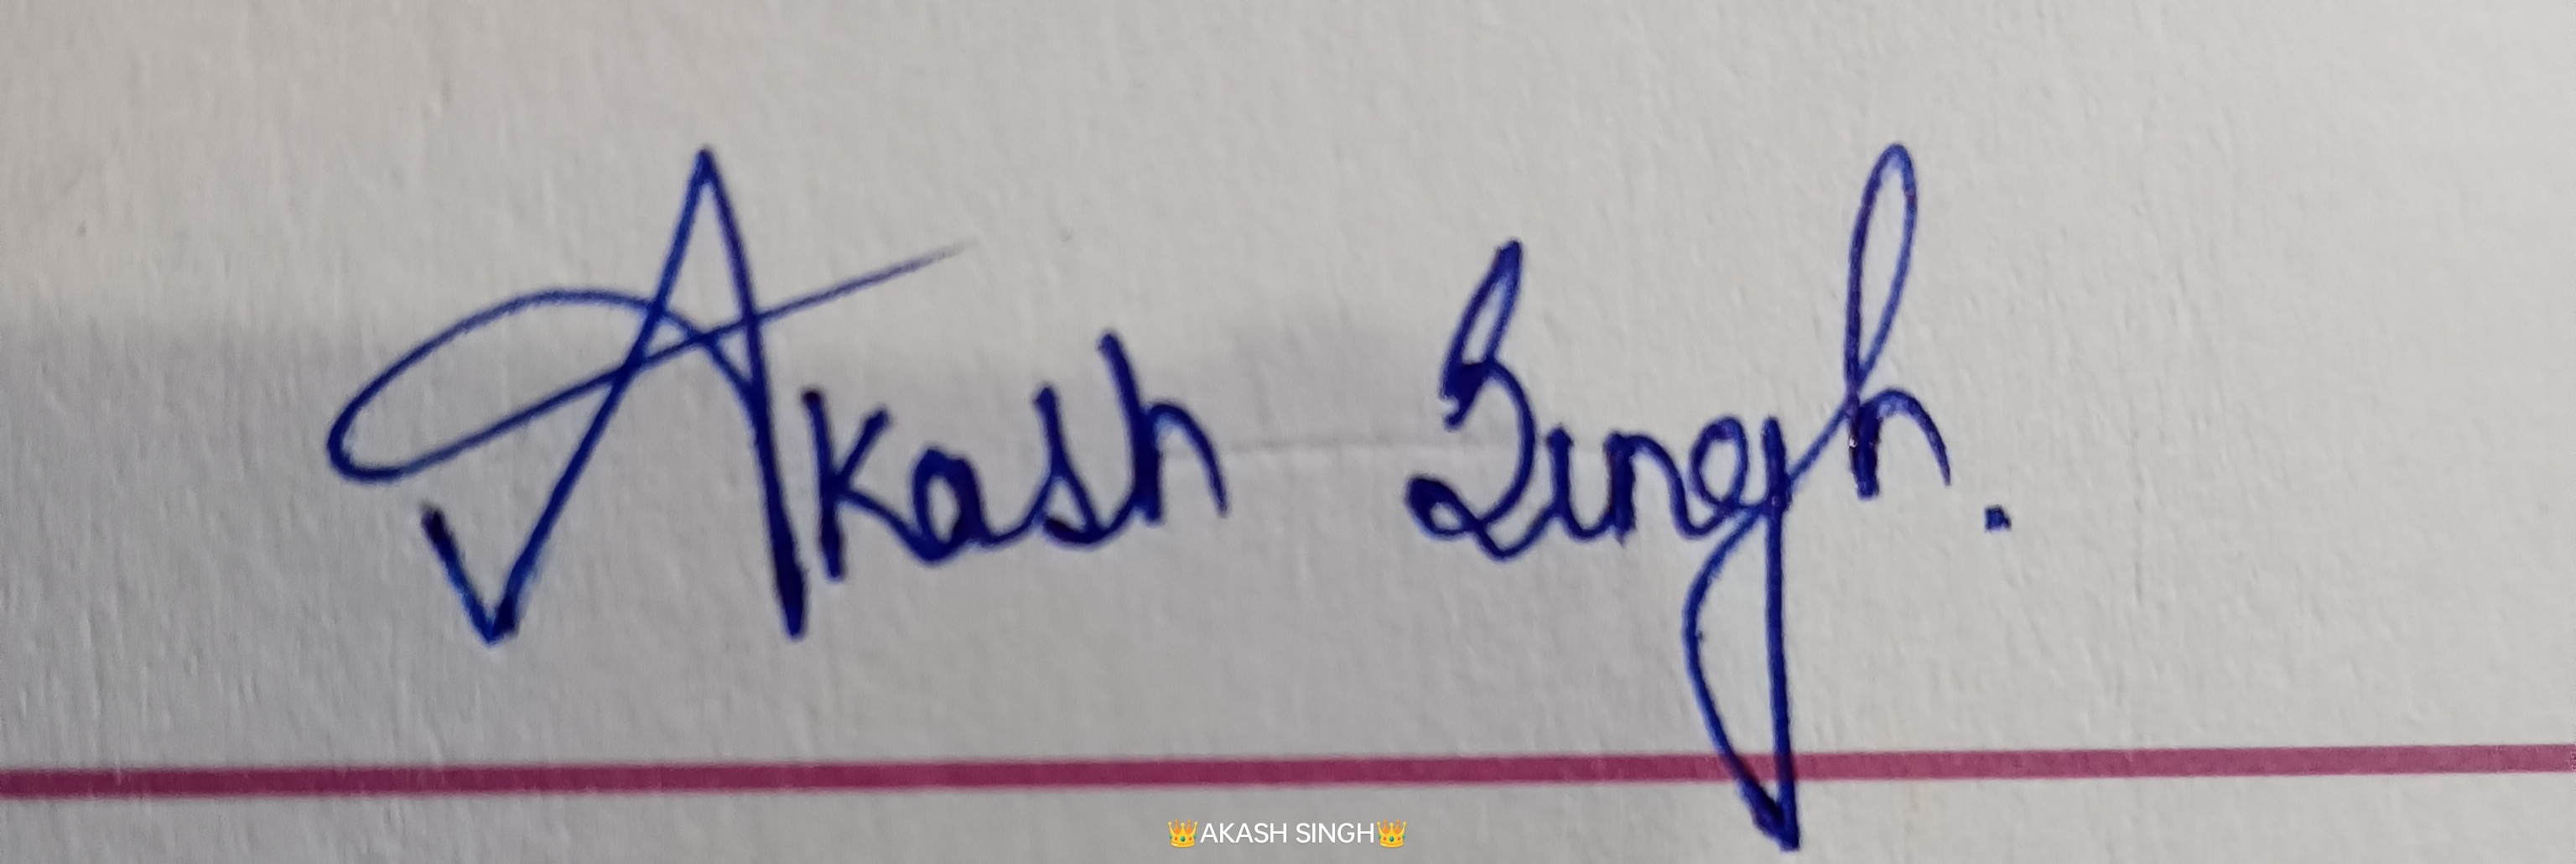 Akash Singh.
👑AKASH SINGH👑